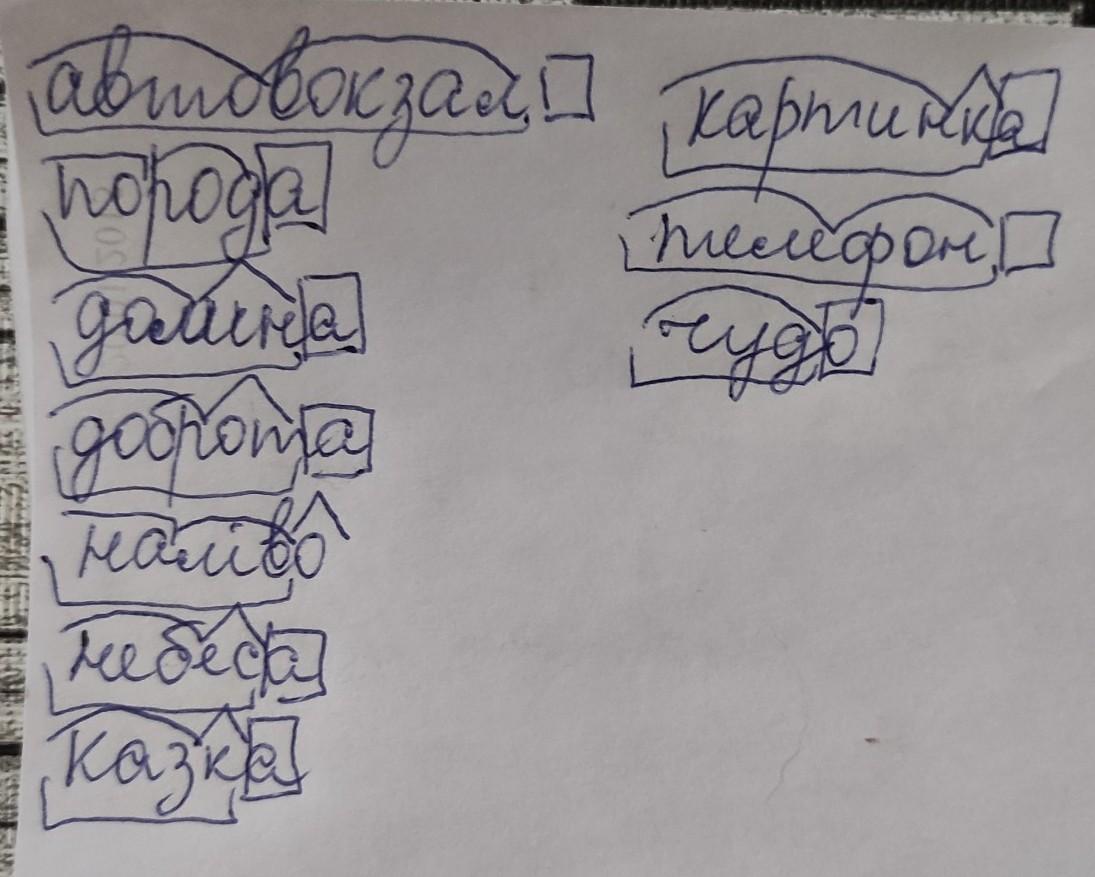 автовокзал
порода
долина
доброта
наліво
небеса
казка
картинка
телефон
чудо